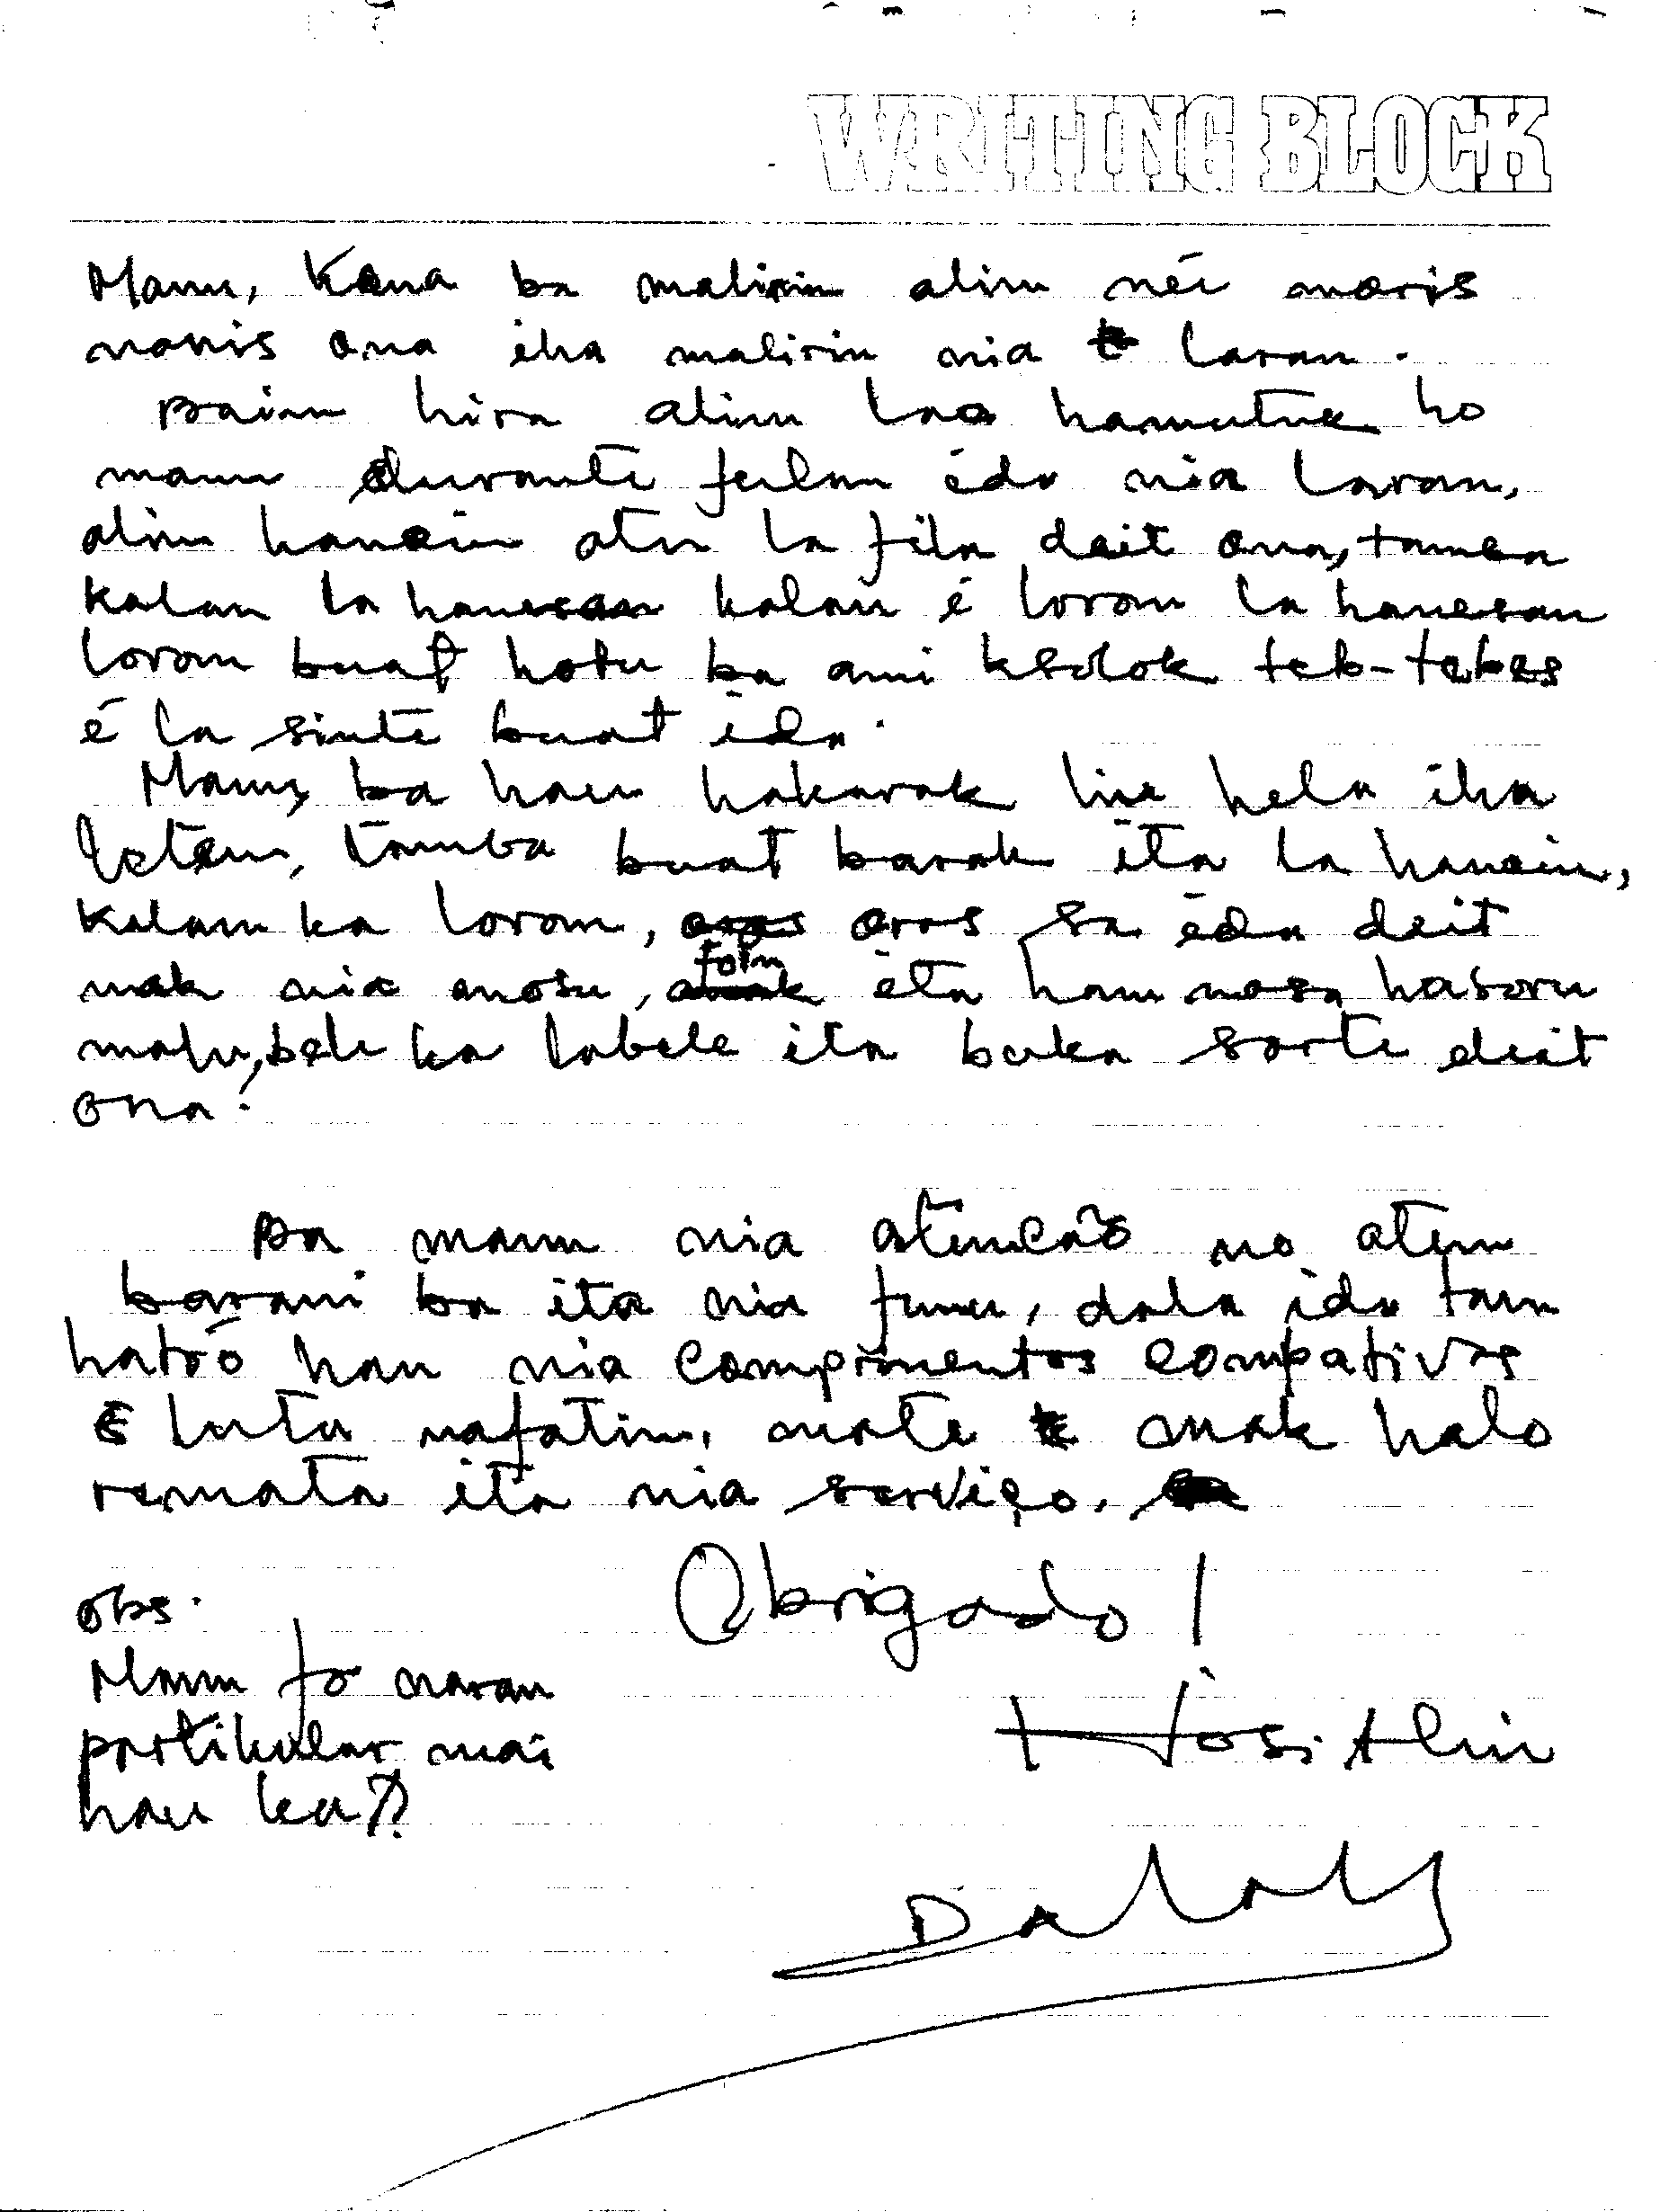 WRITING BLOCK
Maun, Kona ba malirin alin né'e moris
nanis ona iha malirin nia laran.
Bain hira alin lao hamutuk ho
maun durante fulan ida nia laran,
alin hanoin atu la fila deit ona, tamba
kalan la hanesan kalan é loron la hanesan
loron buat hotu ba ami ksolok teb-tebes
é la sinte buat ida.
Maun, ba hau hakarak liu hela iha
leten, tamba buat barak ita la hanoin,
kalan ka loron, oras sa ida deit
mak nia mosu, foin ita ham mosa hasoru
malu, bele ka labele ita buka sorte deit
ona!
Ba maun nia atencaõ no aten
barani ba ita nia funu, dala ida tan
hato'o hau nia comprimentos compativos
E luta nafatin, mate mak halo
remata ita nia serviço.
Obrigado!
obs.
Maun fo naran
partikular mai
hau ka?
Hosi Alin